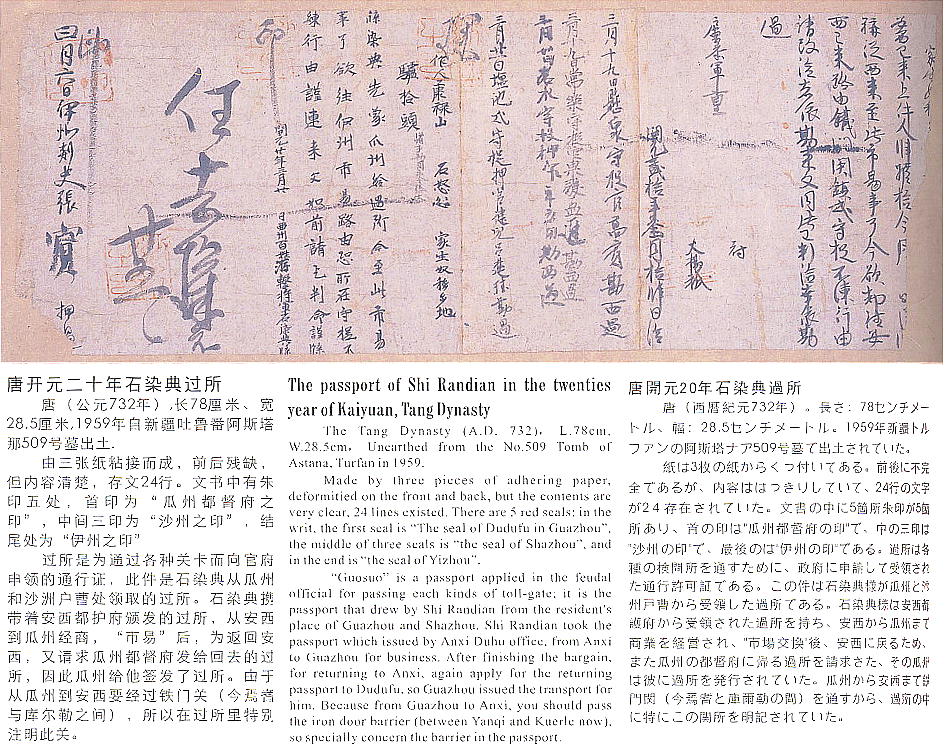 安西已来上件人肆驢拾今月 日得
稱從西來至此市易事了今欲却往安
西已來路由鐵門關鎮戍守捉不練行由
請改給者依勘來文同此已判給幸依勘
過
府
戶曹參軍亶
史楊祗
開元貳拾年叁月拾肆日給
三月十九日懸泉守捉官高賓勘西過
三月十九日常樂守捉官果毅孟進勘西過
三月廿日苦水守捉押官年五用勘西過
三月廿一日鹽池戍守捉押官健兒呂楚珪勘過
作人康祿山 石怒忿 家生奴移多地
驢拾頭
牒染典先蒙瓜州給過所今至此市易
事了欲往伊州市易路由恐所在守捉不
練行由謹連來文如前請乞判命謹牒
印
開元廿年三月廿 日西州百姓遊擊將軍石染典牒
任去
四月六日伊州刺史張 賓 押過
唐开元二十年石染典过所
唐（公元732年）,长78厘米、宽
28.5厘米,1959年自新疆吐鲁番阿斯塔
那509号墓出土.
由三张纸粘接而成，前后残缺，
但内容清楚，存文24行。文书中有朱
印五处，首印为“瓜州都督府之
印”，中间三印为“沙州之印”，结
尾处为“伊州之印”
过所是为通过各种关卡而向官府
申领的通行证，此件是石染典从瓜州
和沙洲户曹处领取的过所。石染典携
带着安西都护府颁发的过所，从安西
到瓜州经商，“市易”后，为返回安
西，又请求瓜州都督府发给回去的过
所，因此瓜州给他签发了过所。由于
从瓜州到安西要经过铁门关（今焉耆
与库尔勒之间），所以在过所里特别
注明此关。
The passport of Shi Randian in the twenties
year of Kaiyuan, Tang Dynasty
The Tang Dynasty (A.D. 732), L.78cm,
W.28.5cm, Unearthed from the No.509 Tomb of
Astana, Turfan in 1959.
Made by three pieces of adhering paper,
deformitied on the front and back, but the contents are
very clear, 24 lines existed. There are 5 red seals: in the
writ, the first seal is “The seal of Dudufu in Guazhou”,
the middle of three seals is “the seal of Shazhou”, and
in the end is “the seal of Yizhou”.
“Guosuo” is a passport applied in the feudal
official for passing each kinds of toll-gate; it is the
passport that drew by Shi Randian from the resident's
place of Guazhou and Shazhou. Shi Randian took the
passport which issued by Anxi Duhu office, from Anxi
to Guazhou for business. After finishing the bargain,
for returning to Anxi, again apply for the returning
passport to Dudufu, so Guazhou issued the transport for
him. Because from Guazhou to Anxi, you should pass
the iron door barrier (between Yanqi and Kuerle now),
so specially concern the barrier in the passport.
唐開元20年石染典過所
唐（西暦紀元732年）。長さ：78センチメー
トル、幅：28.5センチメートル。1959年新疆トル
ファンの阿斯塔ナア509号墓て出土されていた。
紙は3枚の紙からくっ付いてある。前後に不完
全であるが、内容ははっきりしていて、24行の文字
が24存在されていた。文書の中に5箇所朱印が5箇
所あり、首の印は“瓜州都督府の印”で、中の三印は
“沙州の印”で、最後のは“伊州の印”である。過所は各
種の検問所を通すために、政府に申請して受領され
た通行許可証である。この件は石染典様が瓜州と沙
州戸曹から受領した過所である。石染典様は安西都
護府から受領された過所を持ち、安西から瓜州まで
商業を経営され、“市場交換”後、安西に戻るため、
また瓜州の都督府に帰る過所を請求さた、その瓜州
は彼に過所を発行されていた。瓜州から安西まで鉄
門関（今焉耆と庫爾勒の間）を通すから、過所の中
に特にこの関所を明記されていた。